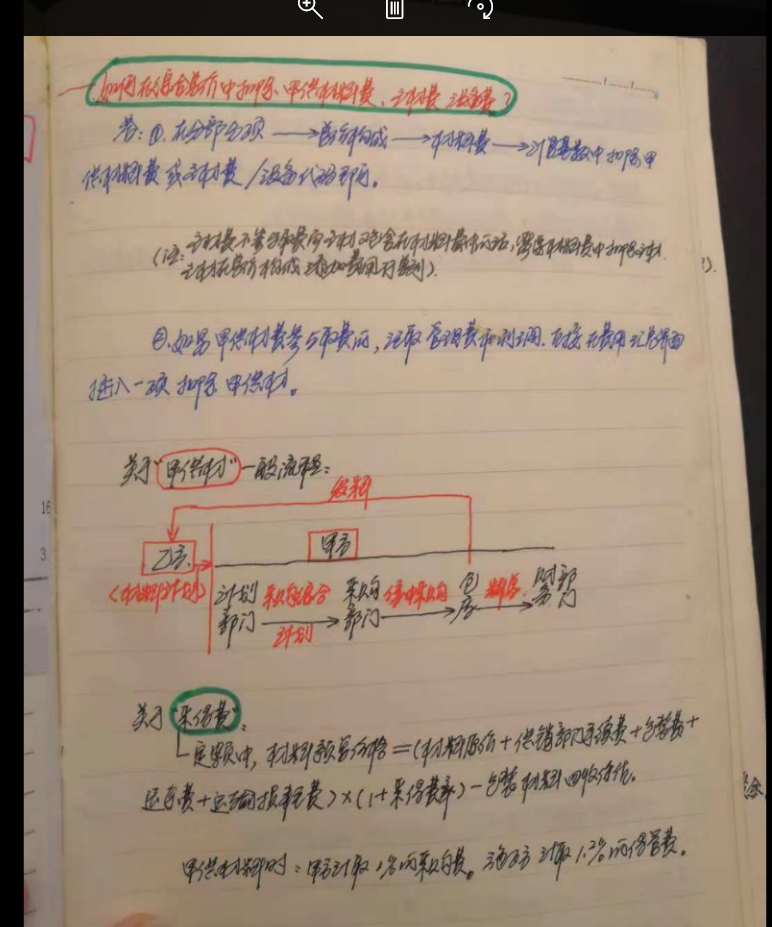 如何在综合单价中扣除、甲供材料费、主材费 设备费?
答:①.在分部分项 → 单价构成 → 材料费 → 计算基数中扣除甲
供材料费 或主材费/设备代码即可。
(注:主材费不参与取费而主材又包含在材料费中的话,需要材料费中扣除主材
主材在单价构成 费用
②.如果甲供材费参与取费的,记取管理费和利润.直接在费用汇总界面
插入一项 扣除 甲供材。
关于"甲供材"一般流程:
领料
乙方. 甲方
(材料计划) 计划部门 采购 计划 采购部门 集中采购 仓库 财务部门
关于"采保费":
定额中,材料预算价格=(材料原价+供销部门手续费+包装费+
运杂费+运输损耗费)×(1+采保费率)-包装材料回收价值。
甲供材料时:甲方计取 %的采购费。 乙方计取 %的保管费。
16
3